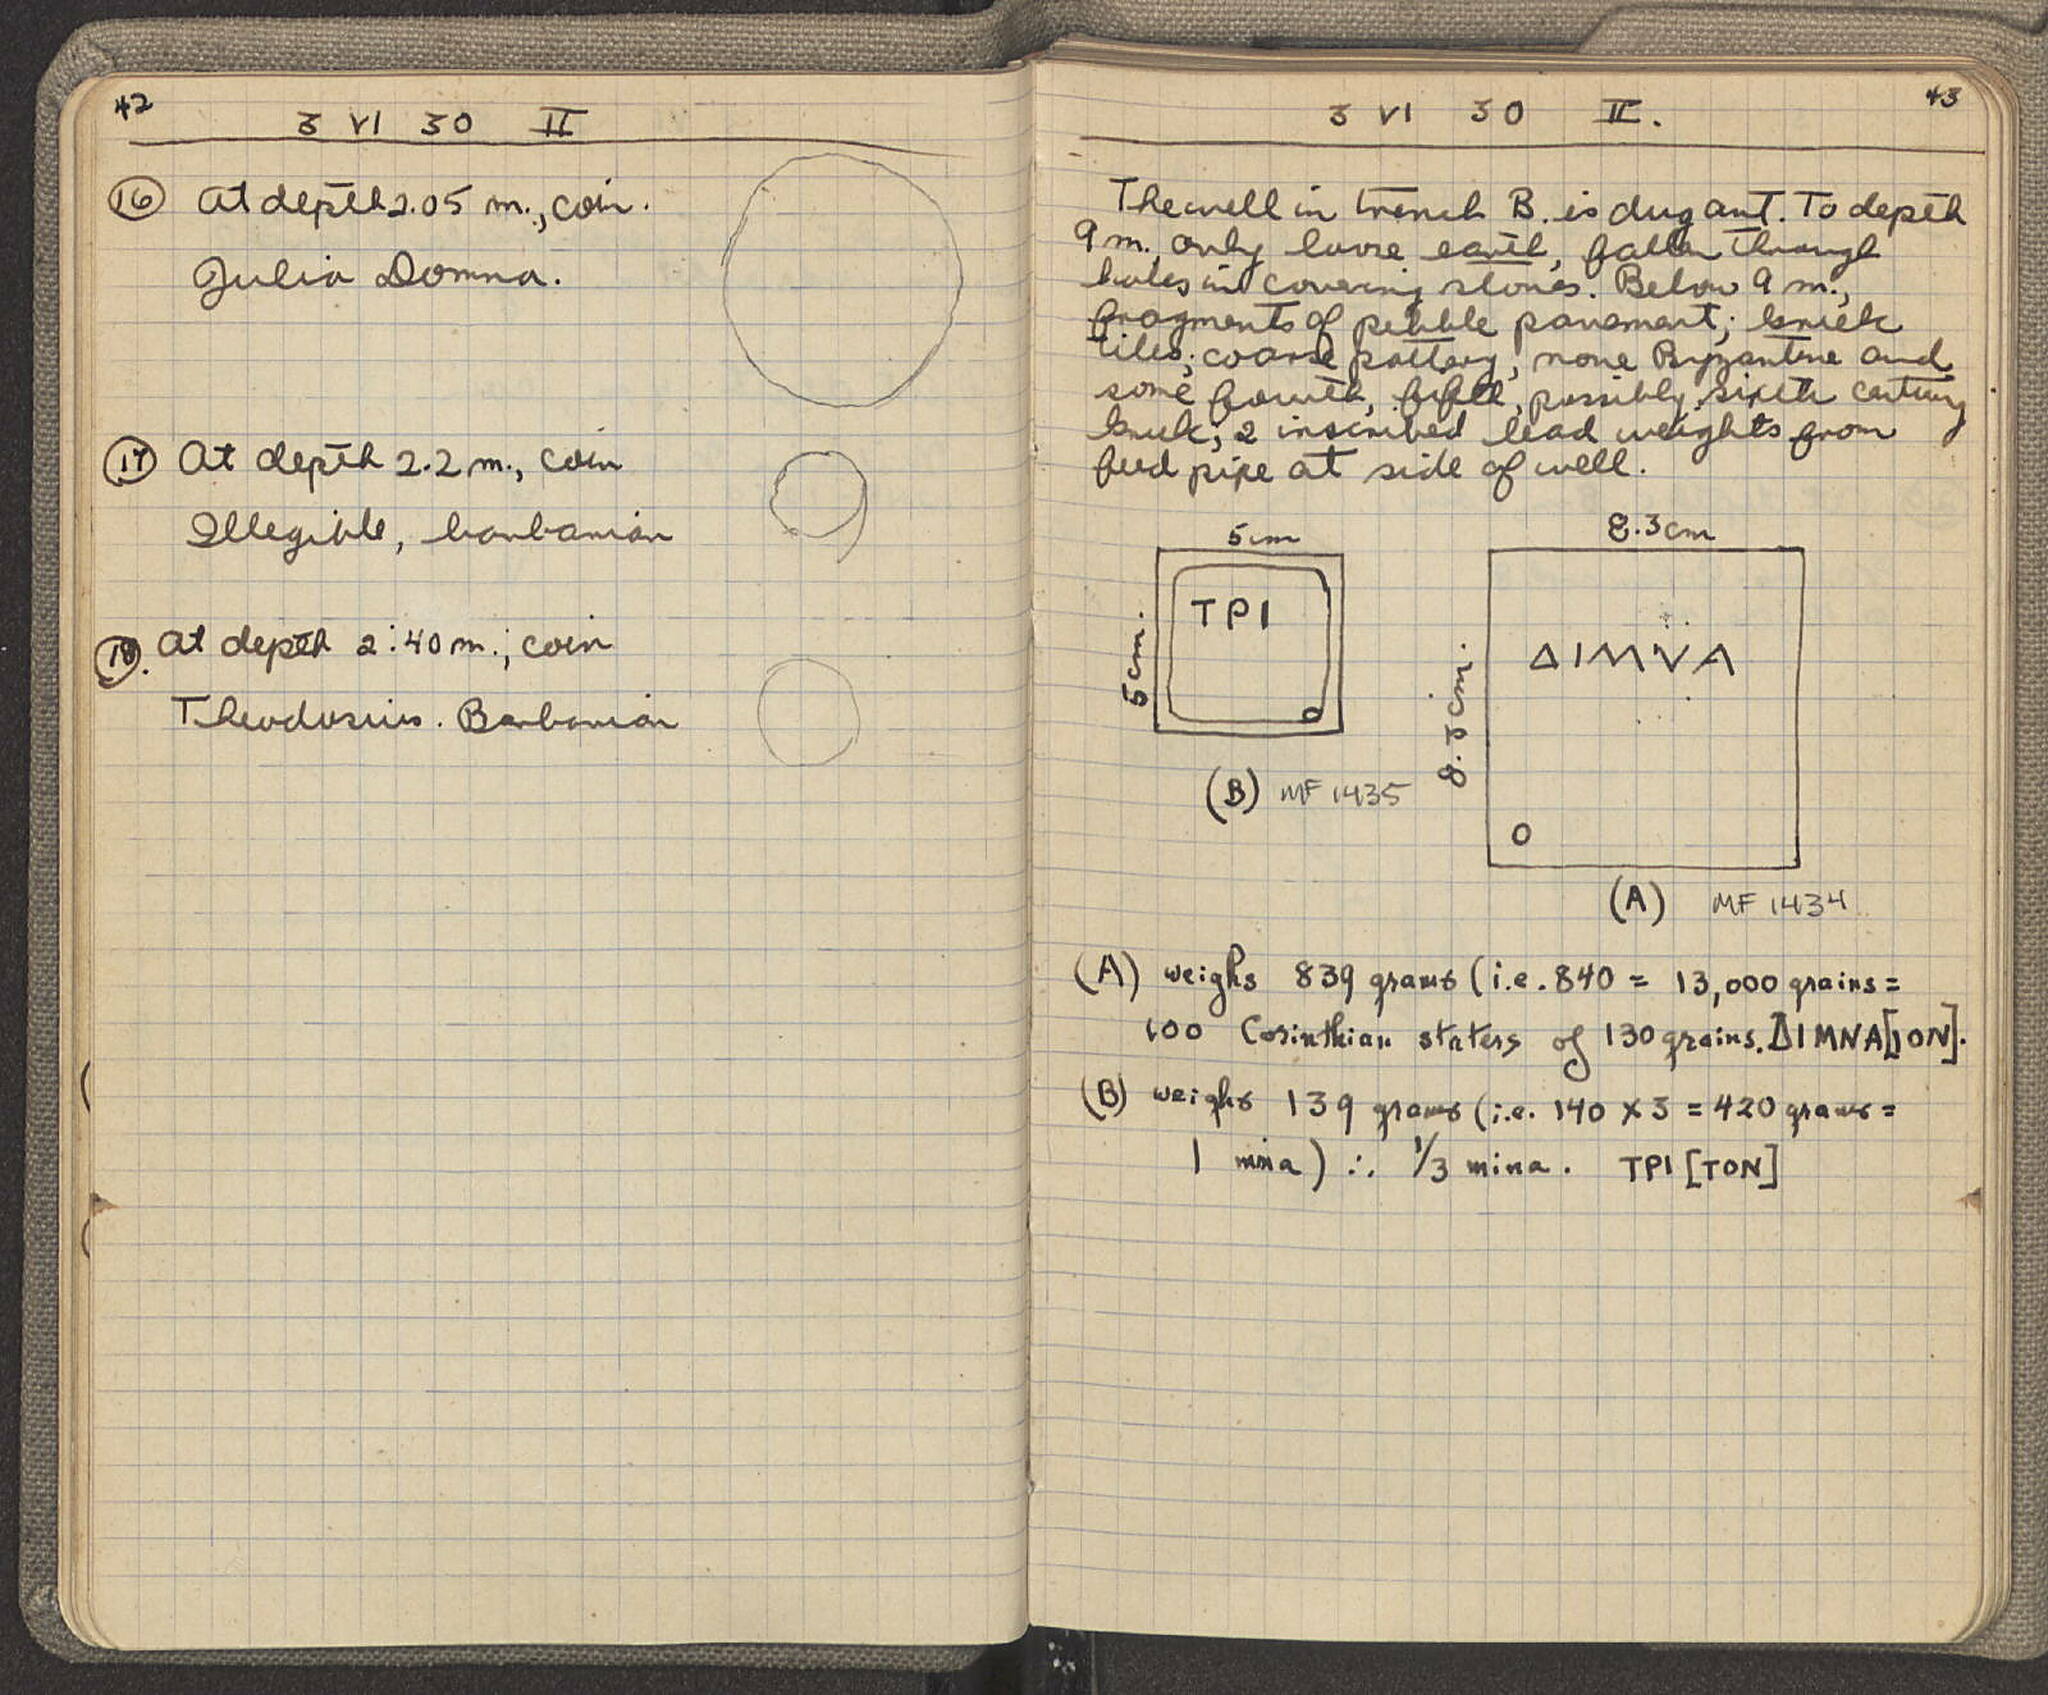 42
3 VI 30 II
16 At depth 2.05 m., coin.
Julia Domna.
17 At depth 2.2 m., coin
Illegible, barbarian
18. At depth 2.40 m., coin
Theodosius. Barbarian
43
3 VI 30 II.
The well in trench B. is dug out. To depth
9 m. only loose earth, fallen through
holes in covering stones. Below 9 m.,
fragments of pebble pavement; brick
tiles; coarse pottery, none Byzantine and
some fourth, fifth, possibly sixth century
2 inscribed lead weights from
feed pipe at side of well.
5cm
8.3cm
5cm.
TPI
8.3cm.
ΔIMVA
(B) MF 1435
(A) MF 1434
(A) weighs 839 grams (i.e. 840 = 13,000 grains =
100 Corinthian staters of 130 grains. ΔIMNA[ION].
(B) weighs 139 grams (i.e. 140 x 3 = 420 grams =
1 mna) ∴ 1/3 mina. TPI[TON]